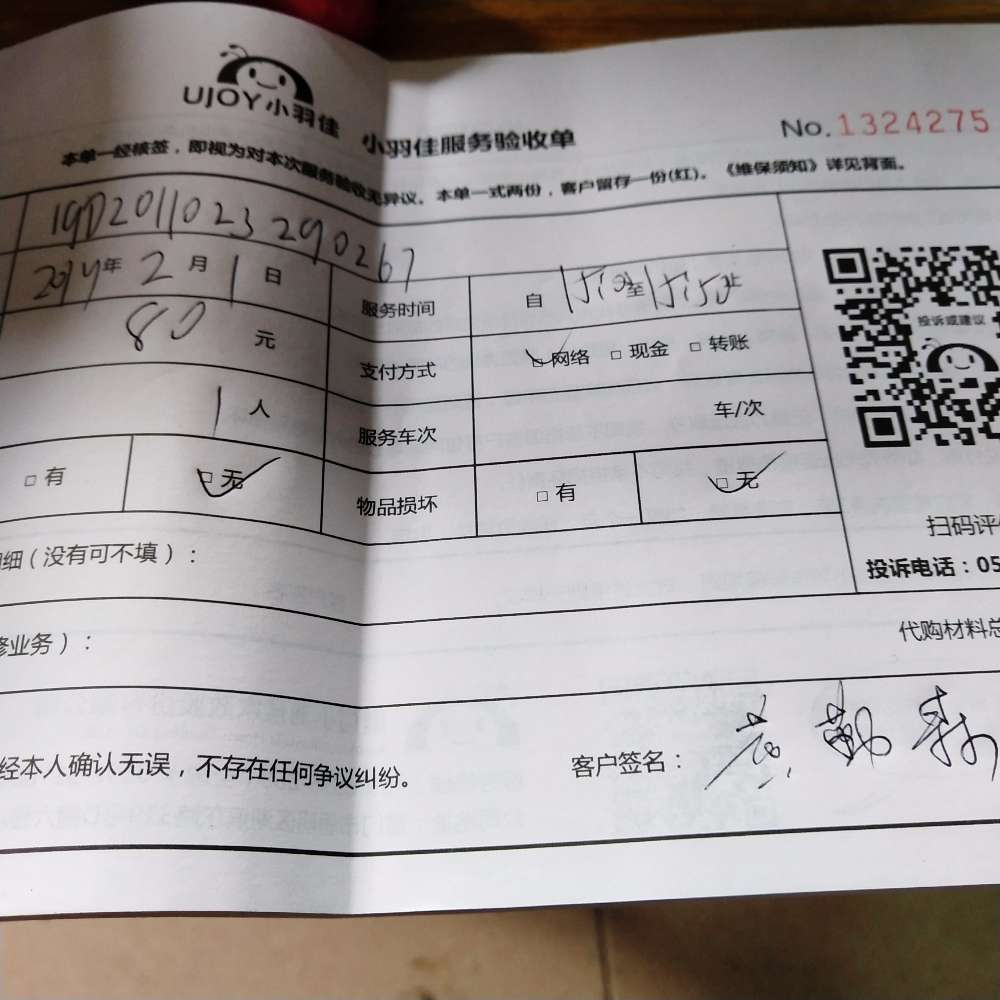 UJOY小羽佳
小羽佳服务验收单
No.1324275
本单一经核签，即视为对本次服务验收无异议。本单一式两份，客户留存一份(红)。《维保须知》详见背面。
19D201102329 0267
年 2 月 1 日
服务时间 自 15:10 至 15:50 止
80 元
支付方式 □网络 □现金 □转账
1 人
服务车次 车/次
□有 □无
物品损坏 □有 □无
投诉或建议
细（没有可不填）：
扫码评
投诉电话：05
修业务）：
代购材料总
经本人确认无误，不存在任何争议纠纷。
客户签名：